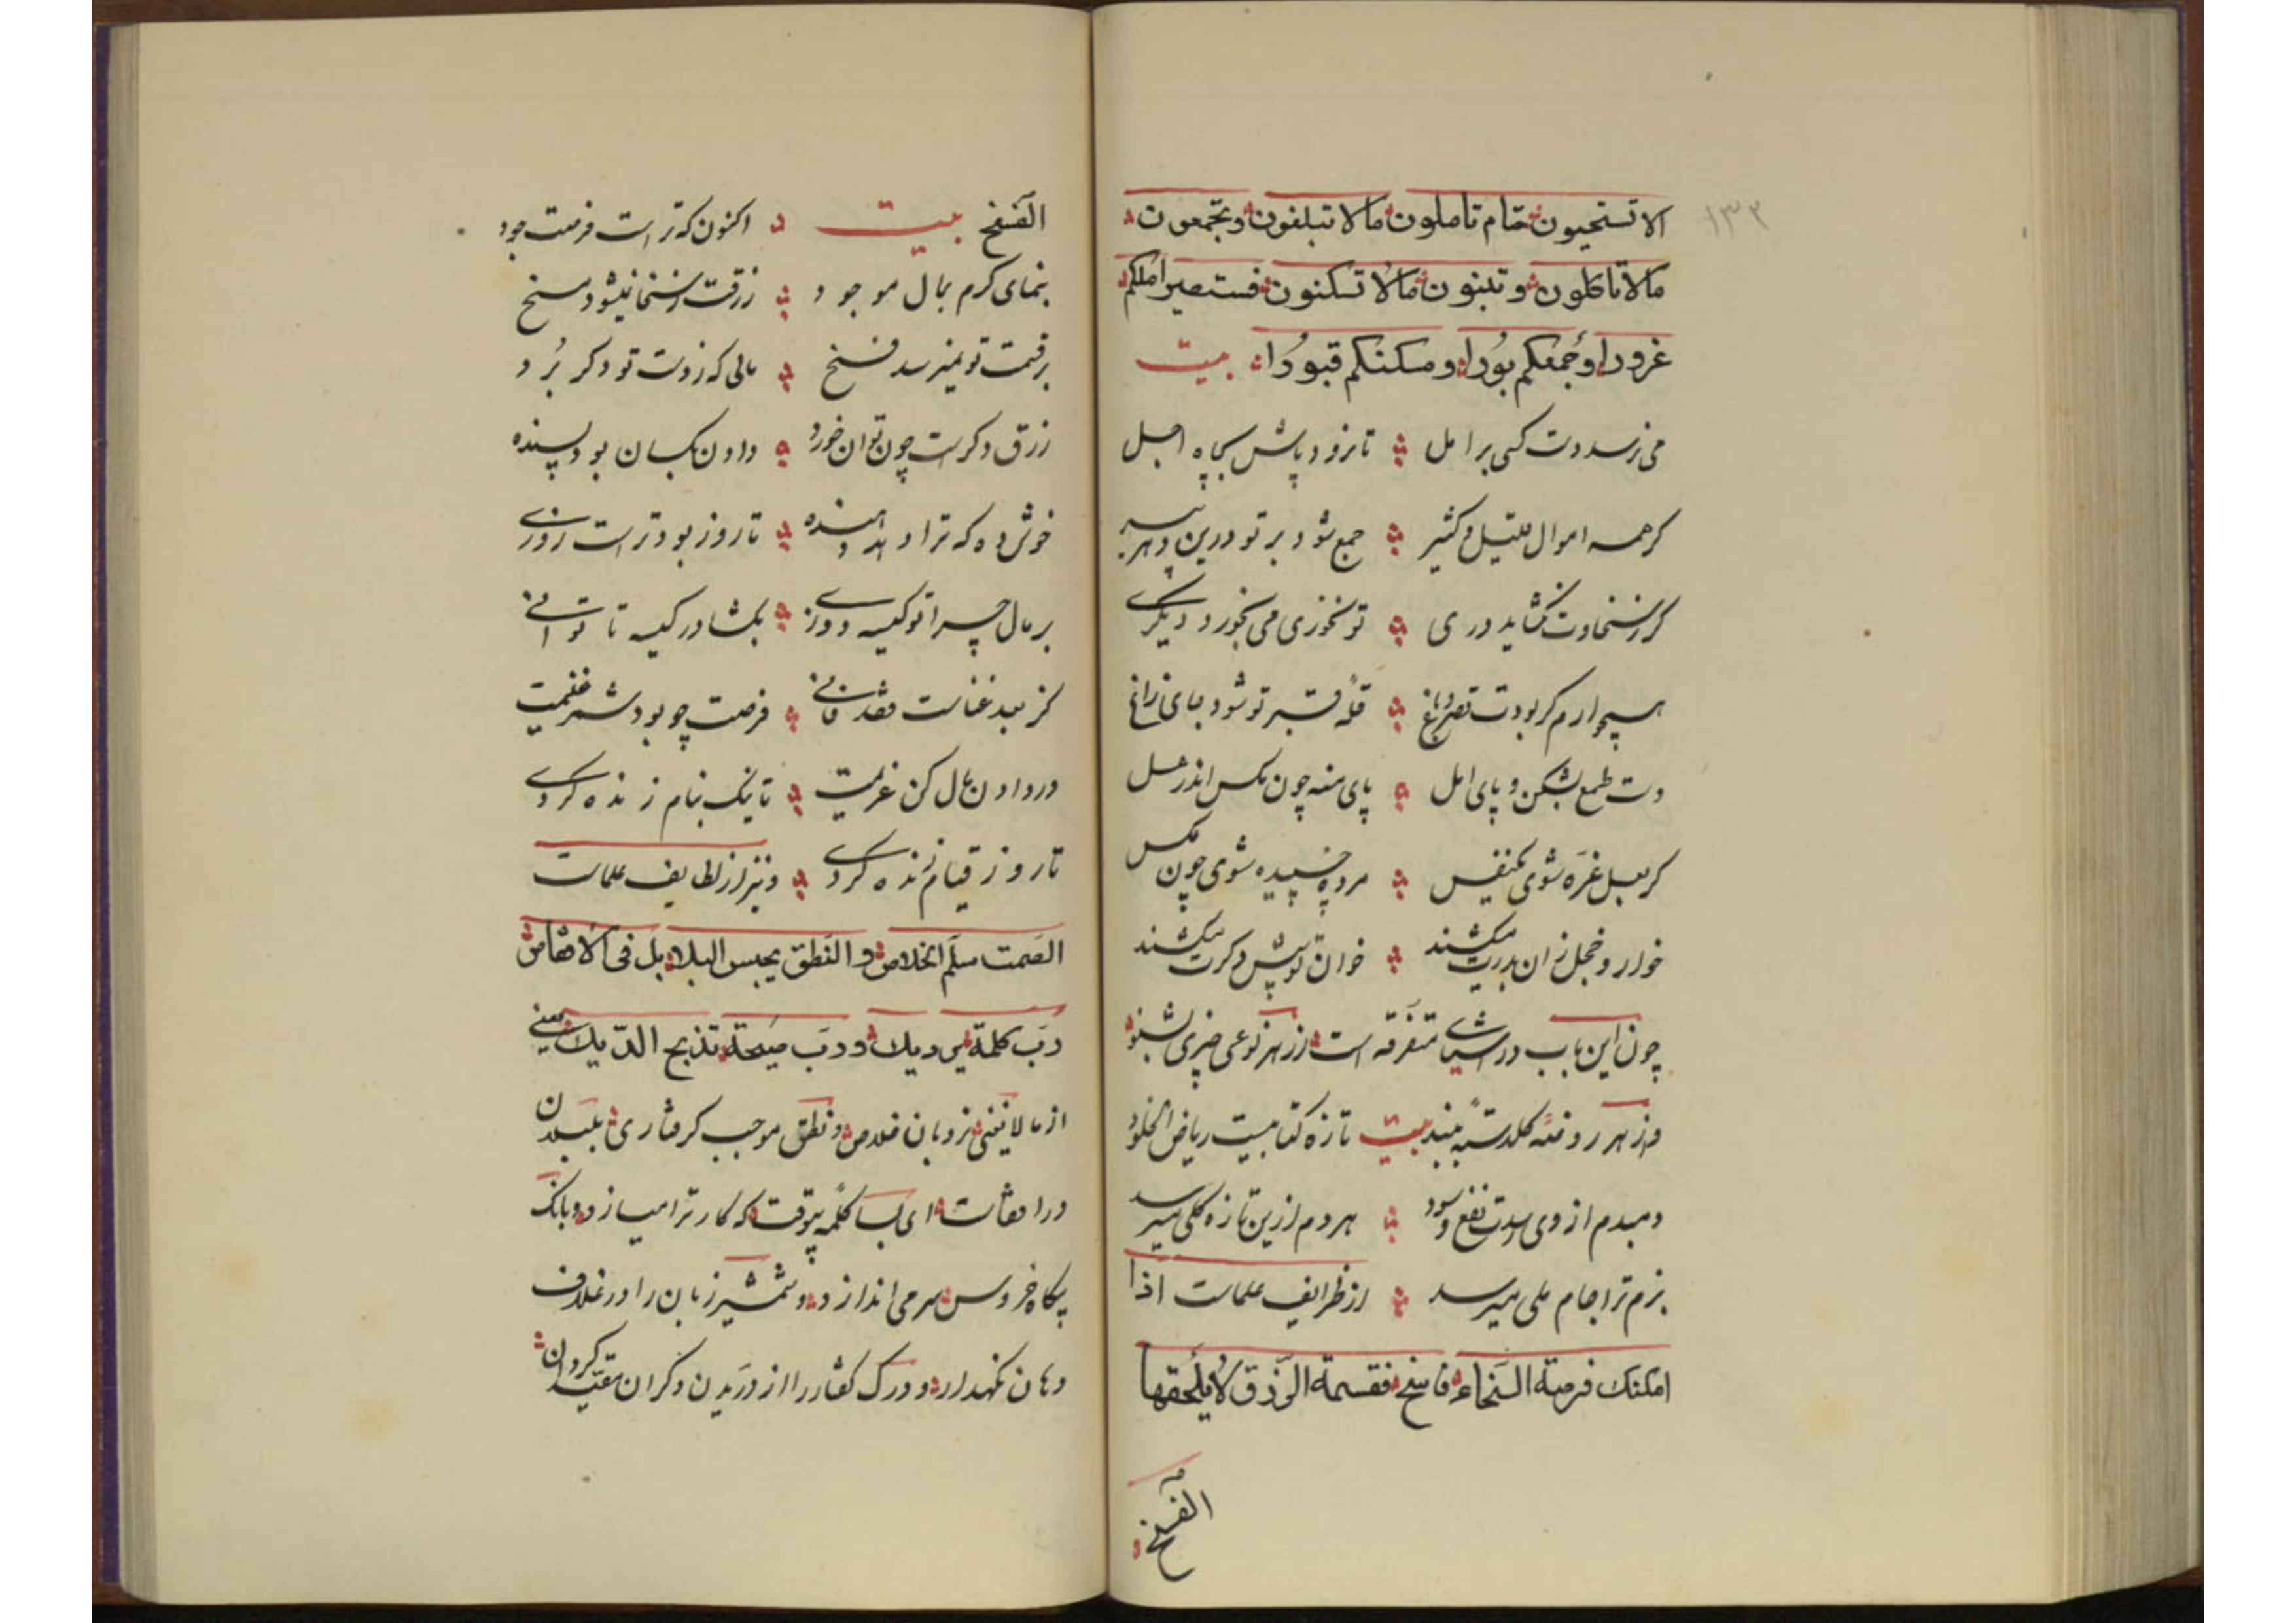 ۱۳۲
الا تستحیون حتام تاملون ما لا تبلغون وتجمعون
ما لا تاکلون وتبنون ما لا تسکنون فستصیر املکم
غرورا وجمعکم بورا ومسکنکم قبورا بیت
می نرسد دست کسی بر امل تا نرود پاش بچاه اجل
کر همه اموال قلیل و کثیر جمع شود بر تو درین
کز سخاوت نکشاید دری تو نخوری می بخورد دیکری
همچو ارم کر بودت قصر و باغ قله قبر تو شود جای زاغ
دست طمع بشکن و پای امل پای منه چون مکس اندر عسل
کر بعسل غره شوی یکنفس مرده چسپیده شوی چون مکس
خوار و خجل زان بدرت میکشند خوان تو پیش دکرت میکشند
چون این باب در اشیای متفرقه است از هر نوعی خبری بشنو
و از هر روضه کلدسته بیند بیت تازه کتابیست ریاض الخلود
دمبدم از وی رسدت نفع و سود هر دم ازین تازه کلی میرسد
بزم ترا جام ملی میرسد از ظرایف علماست اذا
امکنک فرصة السخاء فاسخ فقسمة الرزق لا یلحقها
الفسخ
الفسخ بیت اکنون که تراست فرصت جود
بنمای کرم بمال موجود رزقت ز سخا نمیشود مسخ
بر قسمت تو نمیرسد فسخ مالی که ز دست تو دکر برد
رزق دکرست چون توان خورد دادن بکسان بود پسنده
خوش ده که ترا دهد دهنده تا روز بود تراست روزی
بر مال چرا تو کیسه دوزی بکشا در کیسه تا توانی
فانی فرصت چو بود شمر غنیمت
در دادن مال کن عزیمت تا نیک بنام زنده کردی
تا روز قیام زنده کردی و نیز از لطایف علماست
الصمت سلم الخلاص والنطق یحبس البلابل فی الاقفاص
رب کلمة ویلک ورب صیحة تذبح الدیک یعنی
از ما لا یعنی نردبان خلاص و نطق موجب کرفتاری بلبلان
در اقفاصست ای بسا کلمه بیوقت که کار ترا میسازد و بانک
بیکاه خروس سر می اندازد و شمشیر زبان را در غلاف
دهان نکهدار و درک کفتار را از دریدن دکران مقید کردان